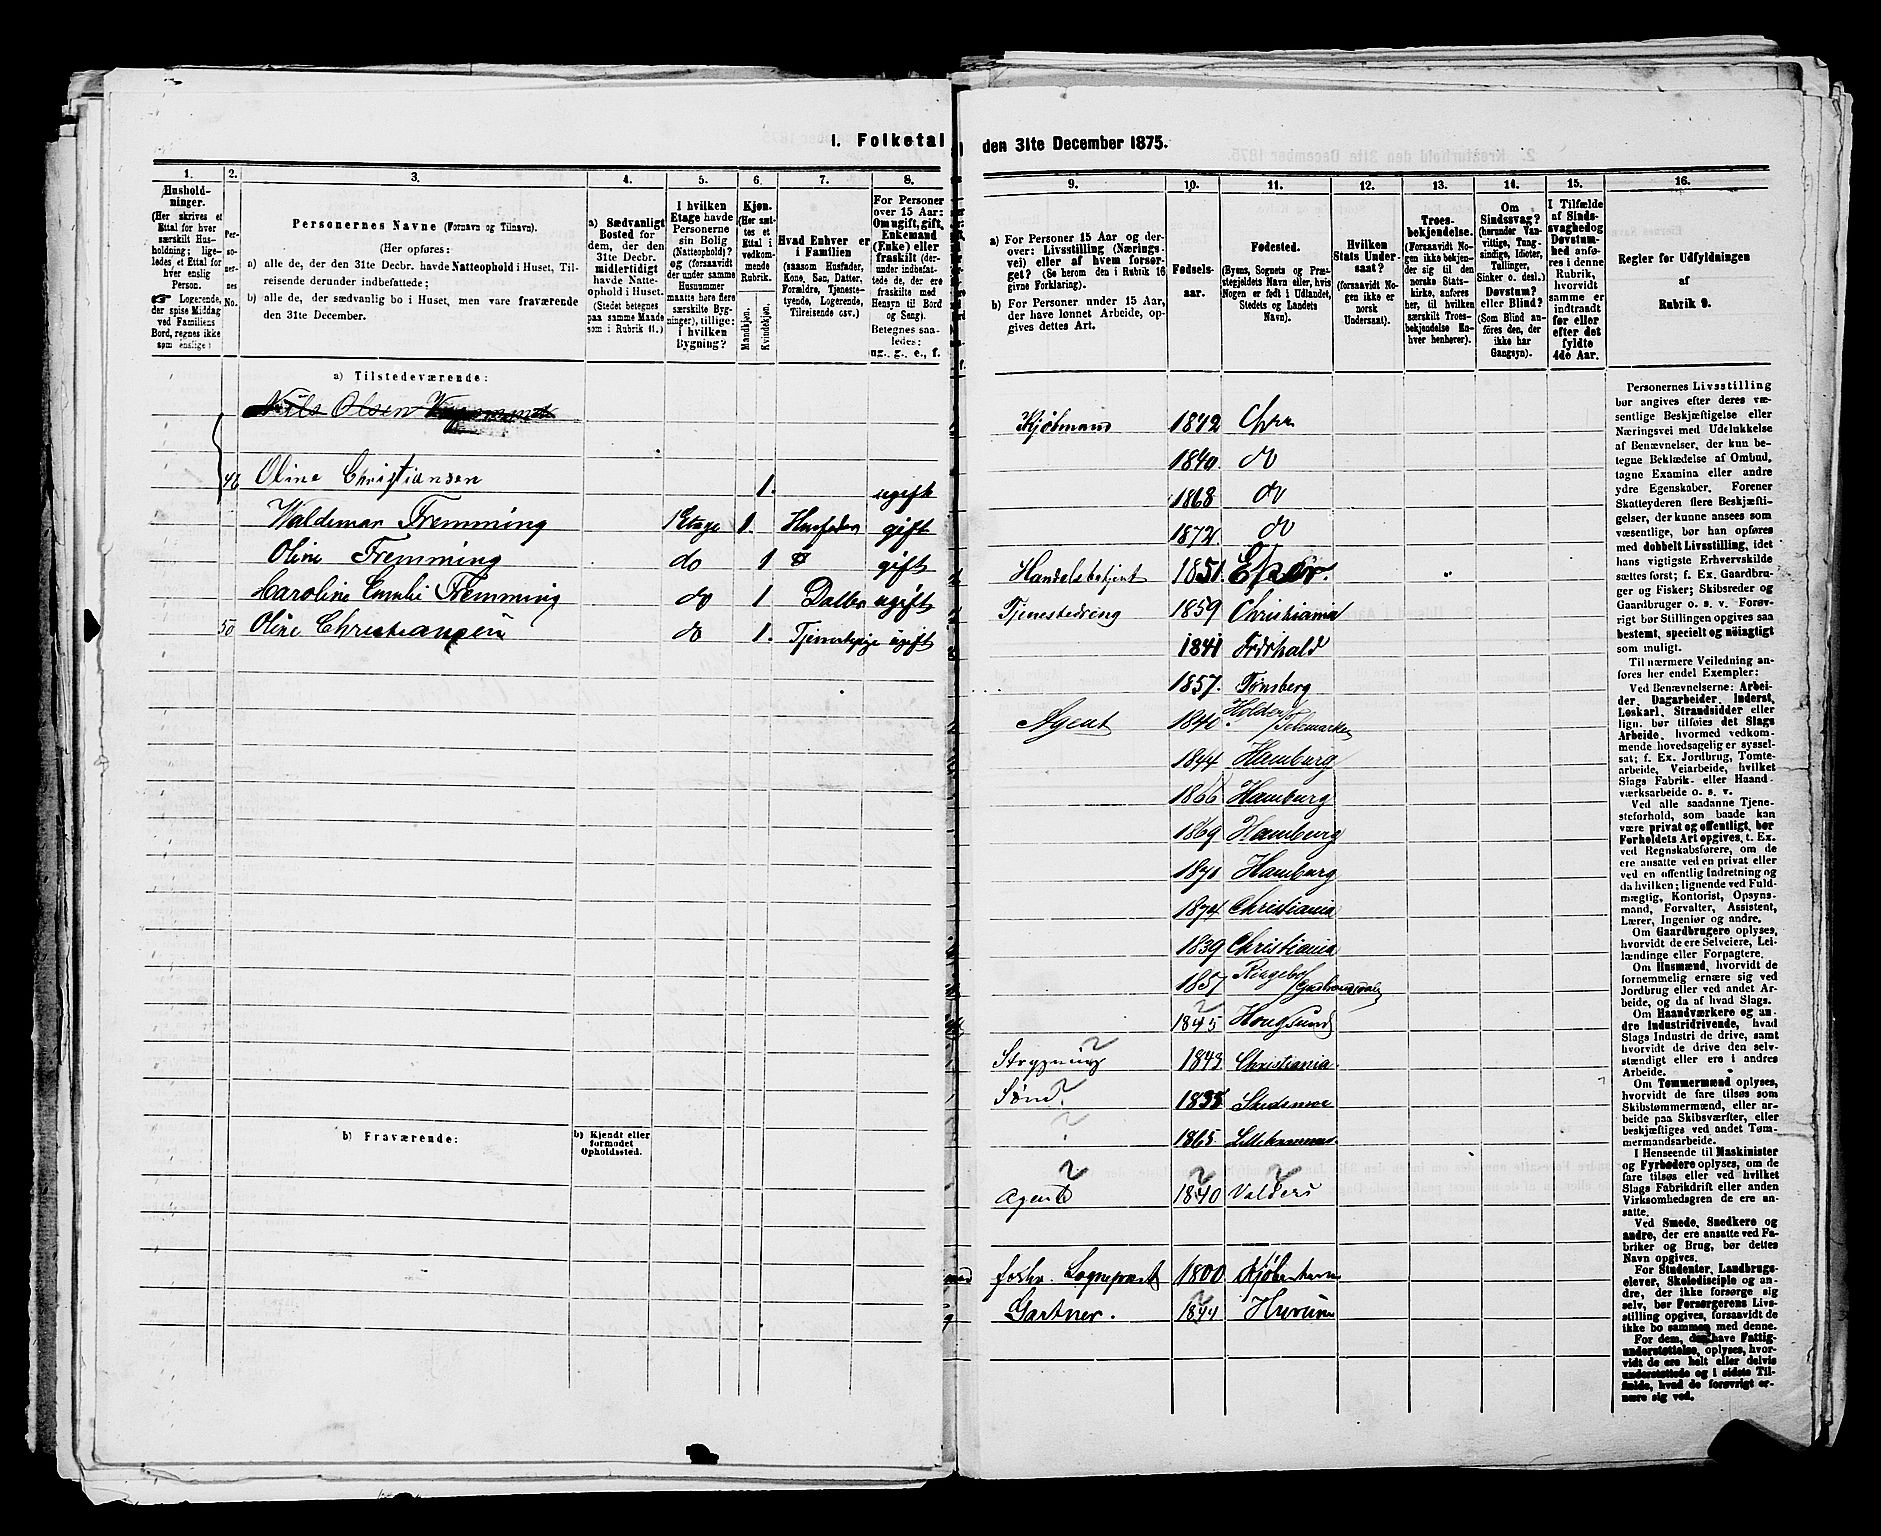 I. Folketal
1.
2.
3.
4.
5.
6.
7.
8.
Hushold-
ninger.
(Her skrives et
Ettal for hver
særskilt Hus-
holdning; lige-
ledes et Ettal for
hver enslig
Person.
☞ Logerende,
der spise Middag
ved Familiens
Bord, regnes ikke
som enslige.)
Per-
so-
ner-
nes
No.
Personernes Navne (Fornavn og Tilnavn).
(Her opføres:
a) alle de, der den 31te Decbr. havde Natteophold i Huset, Til-
reisende derunder indbefattede;
b) alle de, der sædvanlig bo i Huset, men vare fraværende
den 31te December.
a) Sædvanligt
Bosted for
dem, der den
31te Decbr.
midlertidigt
havde Natte-
ophold i Huset.
(Stedet betegnes
paa samme Maade
som i Rubrik 11.)
I hvilken
Etage havde
Personerne
sin Bolig
(Natteophold)?
og (forsaavidt
der under samme
Husnummer
maatte høre flere
særskilte Byg-
ninger), tillige:
i hvilken
Bygning?
Kjøn.
(Her sæt-
tes et
Ettal i
vedkom-
mende
Rubrik.)
Mandkjøn.
Kvindekjøn.
Hvad Enhver er
i Familien
(saasom Husfader,
Kone, Søn, Datter,
Forældre, Tjeneste-
tyende, Logerende,
Tilreisende osv.)
For Personer
over 15 Aar:
Om ugift, gift,
Enkemand
(Enke) eller
fraskilt (der-
under indbefat-
tede de, der ere
fraskilte med
Hensyn til Bord
og Seng).
Betegnes saa-
ledes:
ug., g., e., f.
a) Tilstedeværende:
Nils Olsen
48 Oline Christiansen 1. ugift
Waldemar Fremming 1 Etage 1. Husfader gift
Oline Fremming do 1 gift
Caroline Emilie Fremming do 1 ugift
50 Oline Christiansen do 1. ugift
b) Fraværende:
b) Kjendt eller
formodet
Opholdssted.
den 31te December 1875.
9.
10.
11.
12.
13.
14.
15.
16.
a) For Personer 15 Aar og der-
over: Livsstilling (Nærings-
vei) eller af hvem forsør-
get? (Se herom den i Rubrik 16
givne Forklaring).
b) For Personer under 15 Aar,
der have lønnet Arbeide, op-
gives dettes Art.
Fødsels-
aar.
Fødested.
(Byens, Sognets og Præ-
stegjeldets Navn eller, hvis
Nogen er født i Udlandet,
Stedets og Landets
Navn).
Hvilken
Stats Under-
saat?
(forsaavidt No-
gen ikke er
norsk
Undersaat).
Troes-
bekjendelse.
(Forsaavidt No-
gen ikke bekjen-
der sig til den
norske Stats-
kirke, anføres
her, til hvilken
særskilt Troes-
bekjendelse En-
hver henhører).
Om
Sindssvag?
(herunder Van-
vittige, Tung-
sindige, Idioter,
Tullinger,
Sinker o. desl.)
Døvstum?
eller Blind?
(Som Blind an-
føres den, der
ikke har
Gangsyn).
I Tilfælde
af Sinds-
svaghed og
Døvstum-
hed anfø-
res i denne
Rubrik,
hvorvidt
samme er
indtraadt
før eller
efter det
fyldte
4de Aar.
Regler for Udfyldningen
af
Rubrik 9.
Kjøbmand 1842
1840 do
1868 do
1872 do
Handelsbetjent 1851.
Tjenestedreng 1859 Christiania
1841 Frdrhald
1857. Tønsberg
Agent 1840 Holden Telemarken
1844 Hamburg
1866 Hamburg
1869 Hamburg
1871 Hamburg
1874 Christiania
1839 Christiania
1857 Ringebo Gudbrandsdalen
1845 Hougsund
Strygning 1843 Christiania
1835 Skedsmoe
1865 Lillehammer
Agent 1840 Valders
forhv. Sognepræst 1800 Kjøbenhavn
Gartner. 1844 Hurum
Personernes Livsstilling
bør angives efter deres væ-
sentlige Beskjæftigelse eller
Næringsvei med Udelukkelse
af Benævnelser, der kun be-
tegne Beklædelse af Ombud,
tagne Examina eller andre
ydre Egenskaber. Forener
Skatteyderen flere Beskjæfti-
gelser, der kunne ansees som
væsentlige, bør han opføres
med dobbelt Livsstilling, idet
hans vigtigste Erhvervskilde
sættes først; f. Ex. Gaardbru-
ger og Fisker; Skibsreder og
Gaardbruger o. s. v. Forøv-
rigt bør Stillingen opgives saa
bestemt, specielt og nøiagtigt
som muligt.
Til nærmere Veiledning an-
føres her endel Exempler:
Ved Benævnelserne: Arbei-
der, Dagarbeider, Inderst,
Løskarl, Strandsidder eller
lign. bør tilføies det Slags
Arbeide, hvormed vedkom-
mende hovedsagelig er syssel-
sat; f. Ex. Jordbrug, Tomte-
arbeide, Veiarbeide, hvilket
Slags Fabrik- eller Haand-
værksarbeide o. s. v.
Ved alle saadanne Tjene-
steforhold, som baade kan
være privat og offentligt, bør
Forholdets Art opgives, t. Ex.
ved Regnskabsførere, om de
ere ansatte ved en privat eller
ved en offentlig Indretning og
da hvilken; lignende ved Fuld-
mægtig, Kontorist, Opsyns-
mand, Forvalter, Assistent,
Lærer, Ingeniør og andre.
Om Gaardbrugere oplyses,
hvorvidt de ere Selveiere, Lei-
lændinge eller Forpagtere.
Om Husmænd, hvorvidt de
fornemmelig ernære sig ved
Jordbrug eller ved andet Ar-
beide, og da af hvad Slags.
Om Haandværkere og an-
dre Industridrivende, hvad
Slags Industri de drive, samt
hvorvidt de drive den selv-
stændigt eller ere i andres
Arbeide.
Om Tømmermænd oplyses,
hvorvidt de fare tilsøs som
Skibstømmermænd, eller ar-
beide paa Skibsværfter, eller
beskjæftiges ved andet Tøm-
mermandsarbeide.
I Henseende til Maskinister
og Fyrbødere oplyses, om de
fare tilsøs eller ved hvilket
Slags Fabrikdrift eller anden
Virksomhedsgren de ere an-
satte.
Ved Smede, Snedkere og
andre, der ere ansatte ved Fa-
briker og Brug, bør dettes
Navn opgives.
For Studenter, Landbrugs-
elever, Skoledisciple og an-
dre, der ikke forsørge sig
selv, bør Forsørgerens Livs-
stilling opgives, forsaavidt de
ikke bo sammen med denne.
For dem, der have Fattig-
understøttelse, oplyses, hvor-
vidt de ere helt eller delvis
understøttede og i sidste Til-
fælde, hvad de forøvrigt er-
nære sig ved.